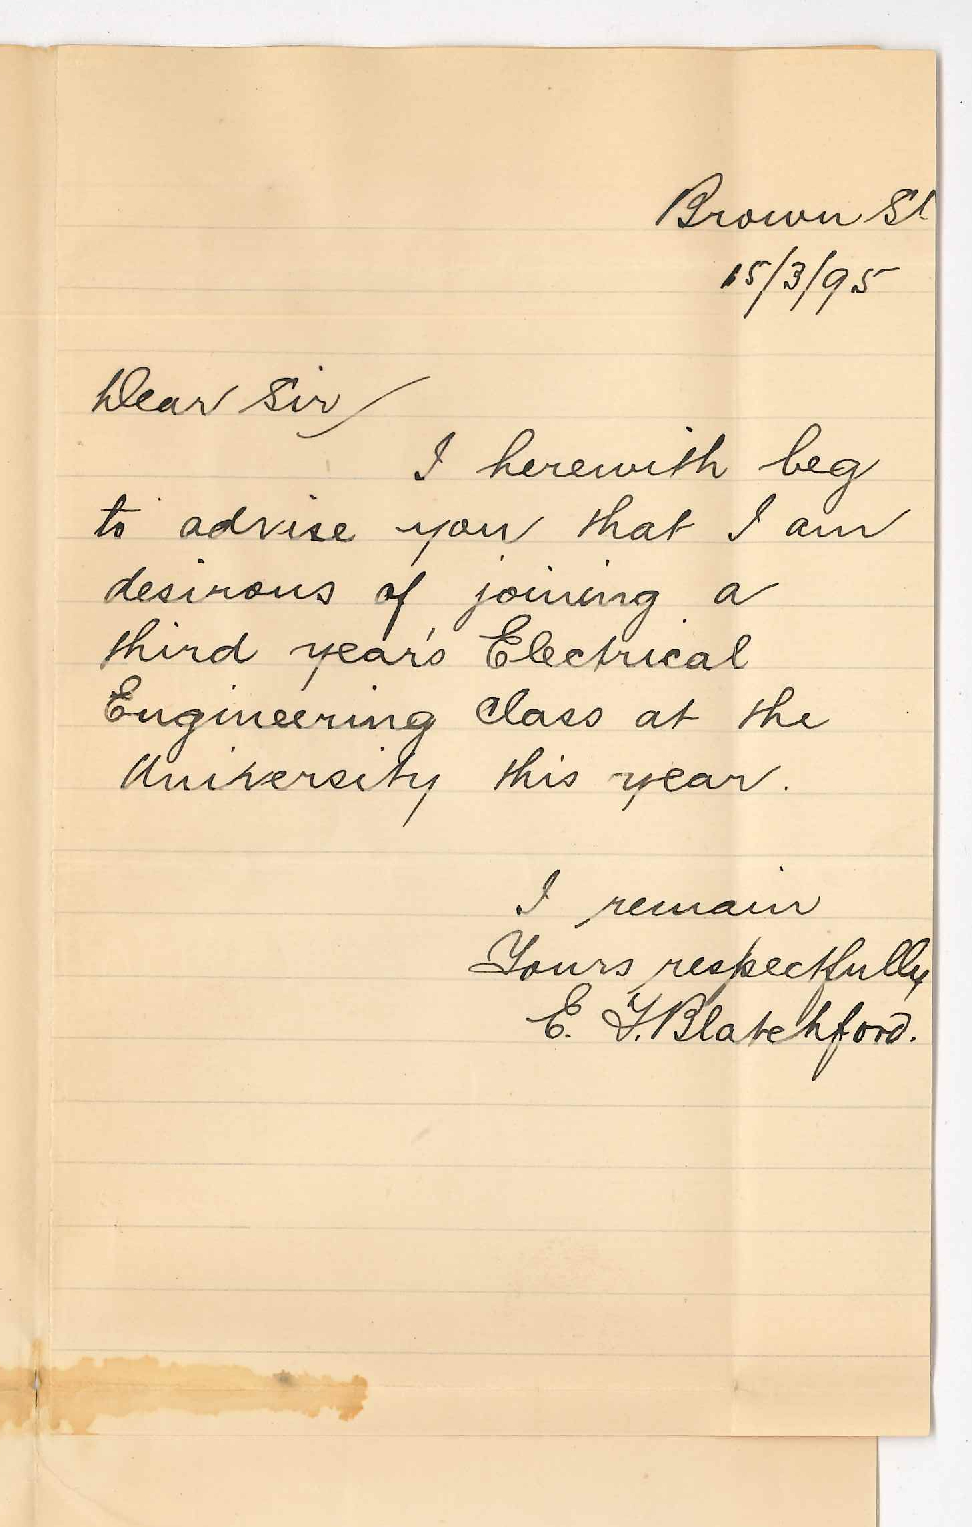 Brown St
15/3/95
Dear Sir/
I herewith beg
to advise you that I am
desirous of joining a
third year's Electrical
Engineering Class at the
University this year.
I remain
Yours respectfully
E. F. Blatchford.